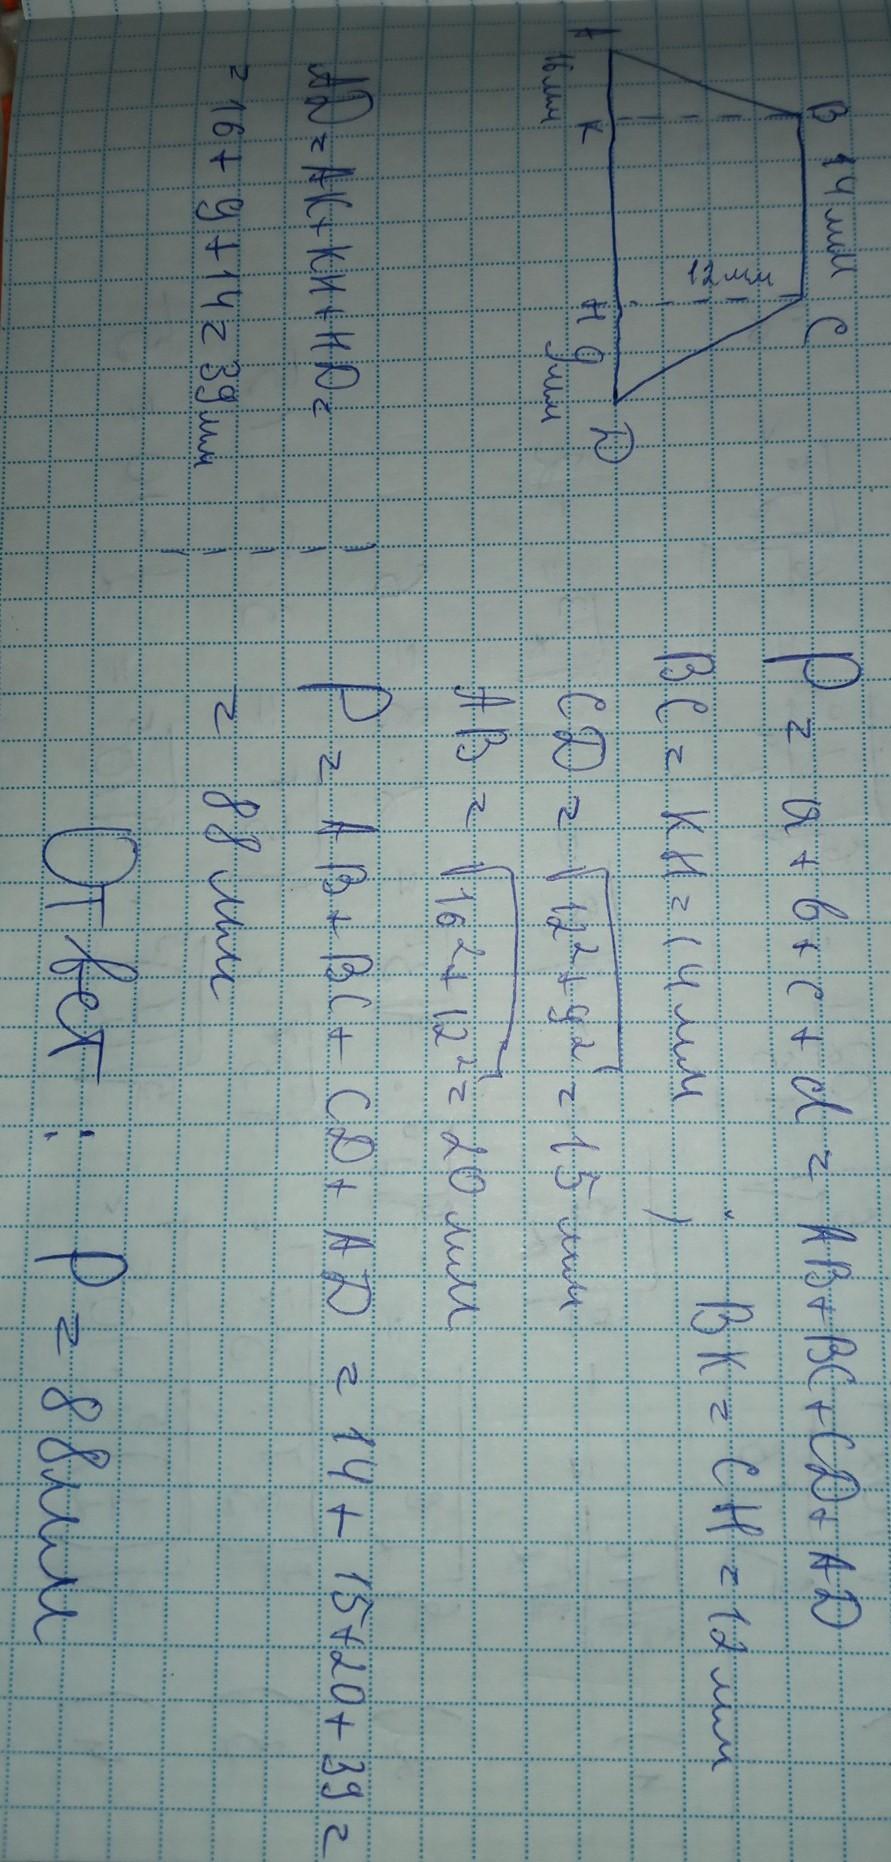 B 14 мм C
12 мм
A 16 мм K H 9 мм D
AD = AK + KH + HD =
= 16 + 9 + 14 = 39 мм
P = a + b + c + d = AB + BC + CD + AD
BC = KH = 14 мм , BK = CH = 12 мм
CD = √12² + 9² = 15 мм
AB = √16² + 12² = 20 мм
P = AB + BC + CD + AD = 14 + 15 + 20 + 39 =
= 88 мм
Ответ: P = 88 мм